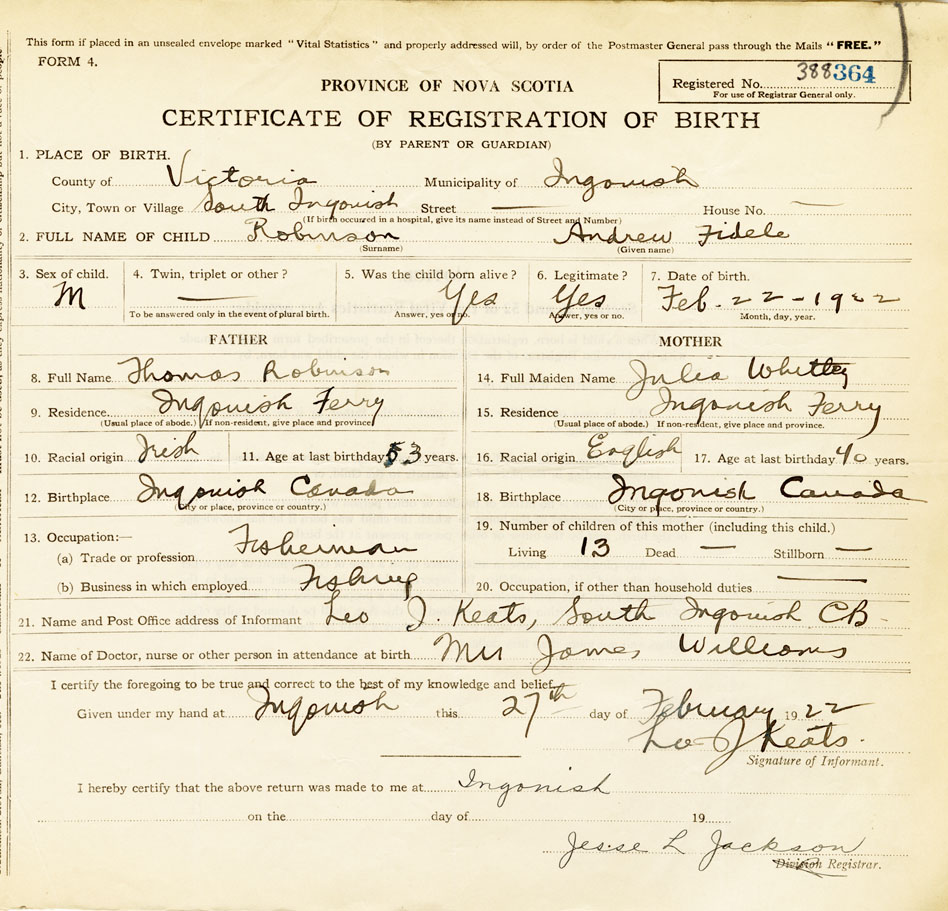 This form if placed in an unsealed envelope marked "Vital Statistics" and properly addressed will, by order of the Postmaster General pass through the Mails "FREE."
FORM 4.
Registered No. 388364
For use of Registrar General only.
PROVINCE OF NOVA SCOTIA
CERTIFICATE OF REGISTRATION OF BIRTH
(BY PARENT OR GUARDIAN)
1. PLACE OF BIRTH.
County of Victoria Municipality of Ingonish
City, Town or Village South Ingonish Street — House No. —
(If birth occurred in a hospital, give its name instead of Street and Number)
2. FULL NAME OF CHILD Robinson Andrew Fidele
(Surname) (Given name)
3. Sex of child. 4. Twin, triplet or other? 5. Was the child born alive? 6. Legitimate? 7. Date of birth.
M — Yes Yes Feb. 22 - 1922
To be answered only in the event of plural birth. Answer, yes or no. Answer, yes or no. Month, day, year.
FATHER
8. Full Name Thomas Robinson
9. Residence Ingonish Ferry
(Usual place of abode.) If non-resident, give place and province
10. Racial origin Irish 11. Age at last birthday 53 years.
12. Birthplace Ingonish Canada
(City or place, province or country.)
13. Occupation:—
(a) Trade or profession Fisherman
(b) Business in which employed Fishing
MOTHER
14. Full Maiden Name Julia Whitty
15. Residence Ingonish Ferry
(Usual place of abode.) If non-resident, give place and province.
16. Racial origin English 17. Age at last birthday 40 years.
18. Birthplace Ingonish Canada
(City or place, province or country.)
19. Number of children of this mother (including this child.)
Living 13 Dead — Stillborn —
20. Occupation, if other than household duties —
21. Name and Post Office address of Informant Leo J. Keats, South Ingonish CB
22. Name of Doctor, nurse or other person in attendance at birth Mrs James Williams
I certify the foregoing to be true and correct to the best of my knowledge and belief.
Given under my hand at Ingonish this 27th day of February 1922
Leo J Keats.
Signature of Informant.
I hereby certify that the above return was made to me at Ingonish
on the day of 19
Jesse L Jackson
Division Registrar.